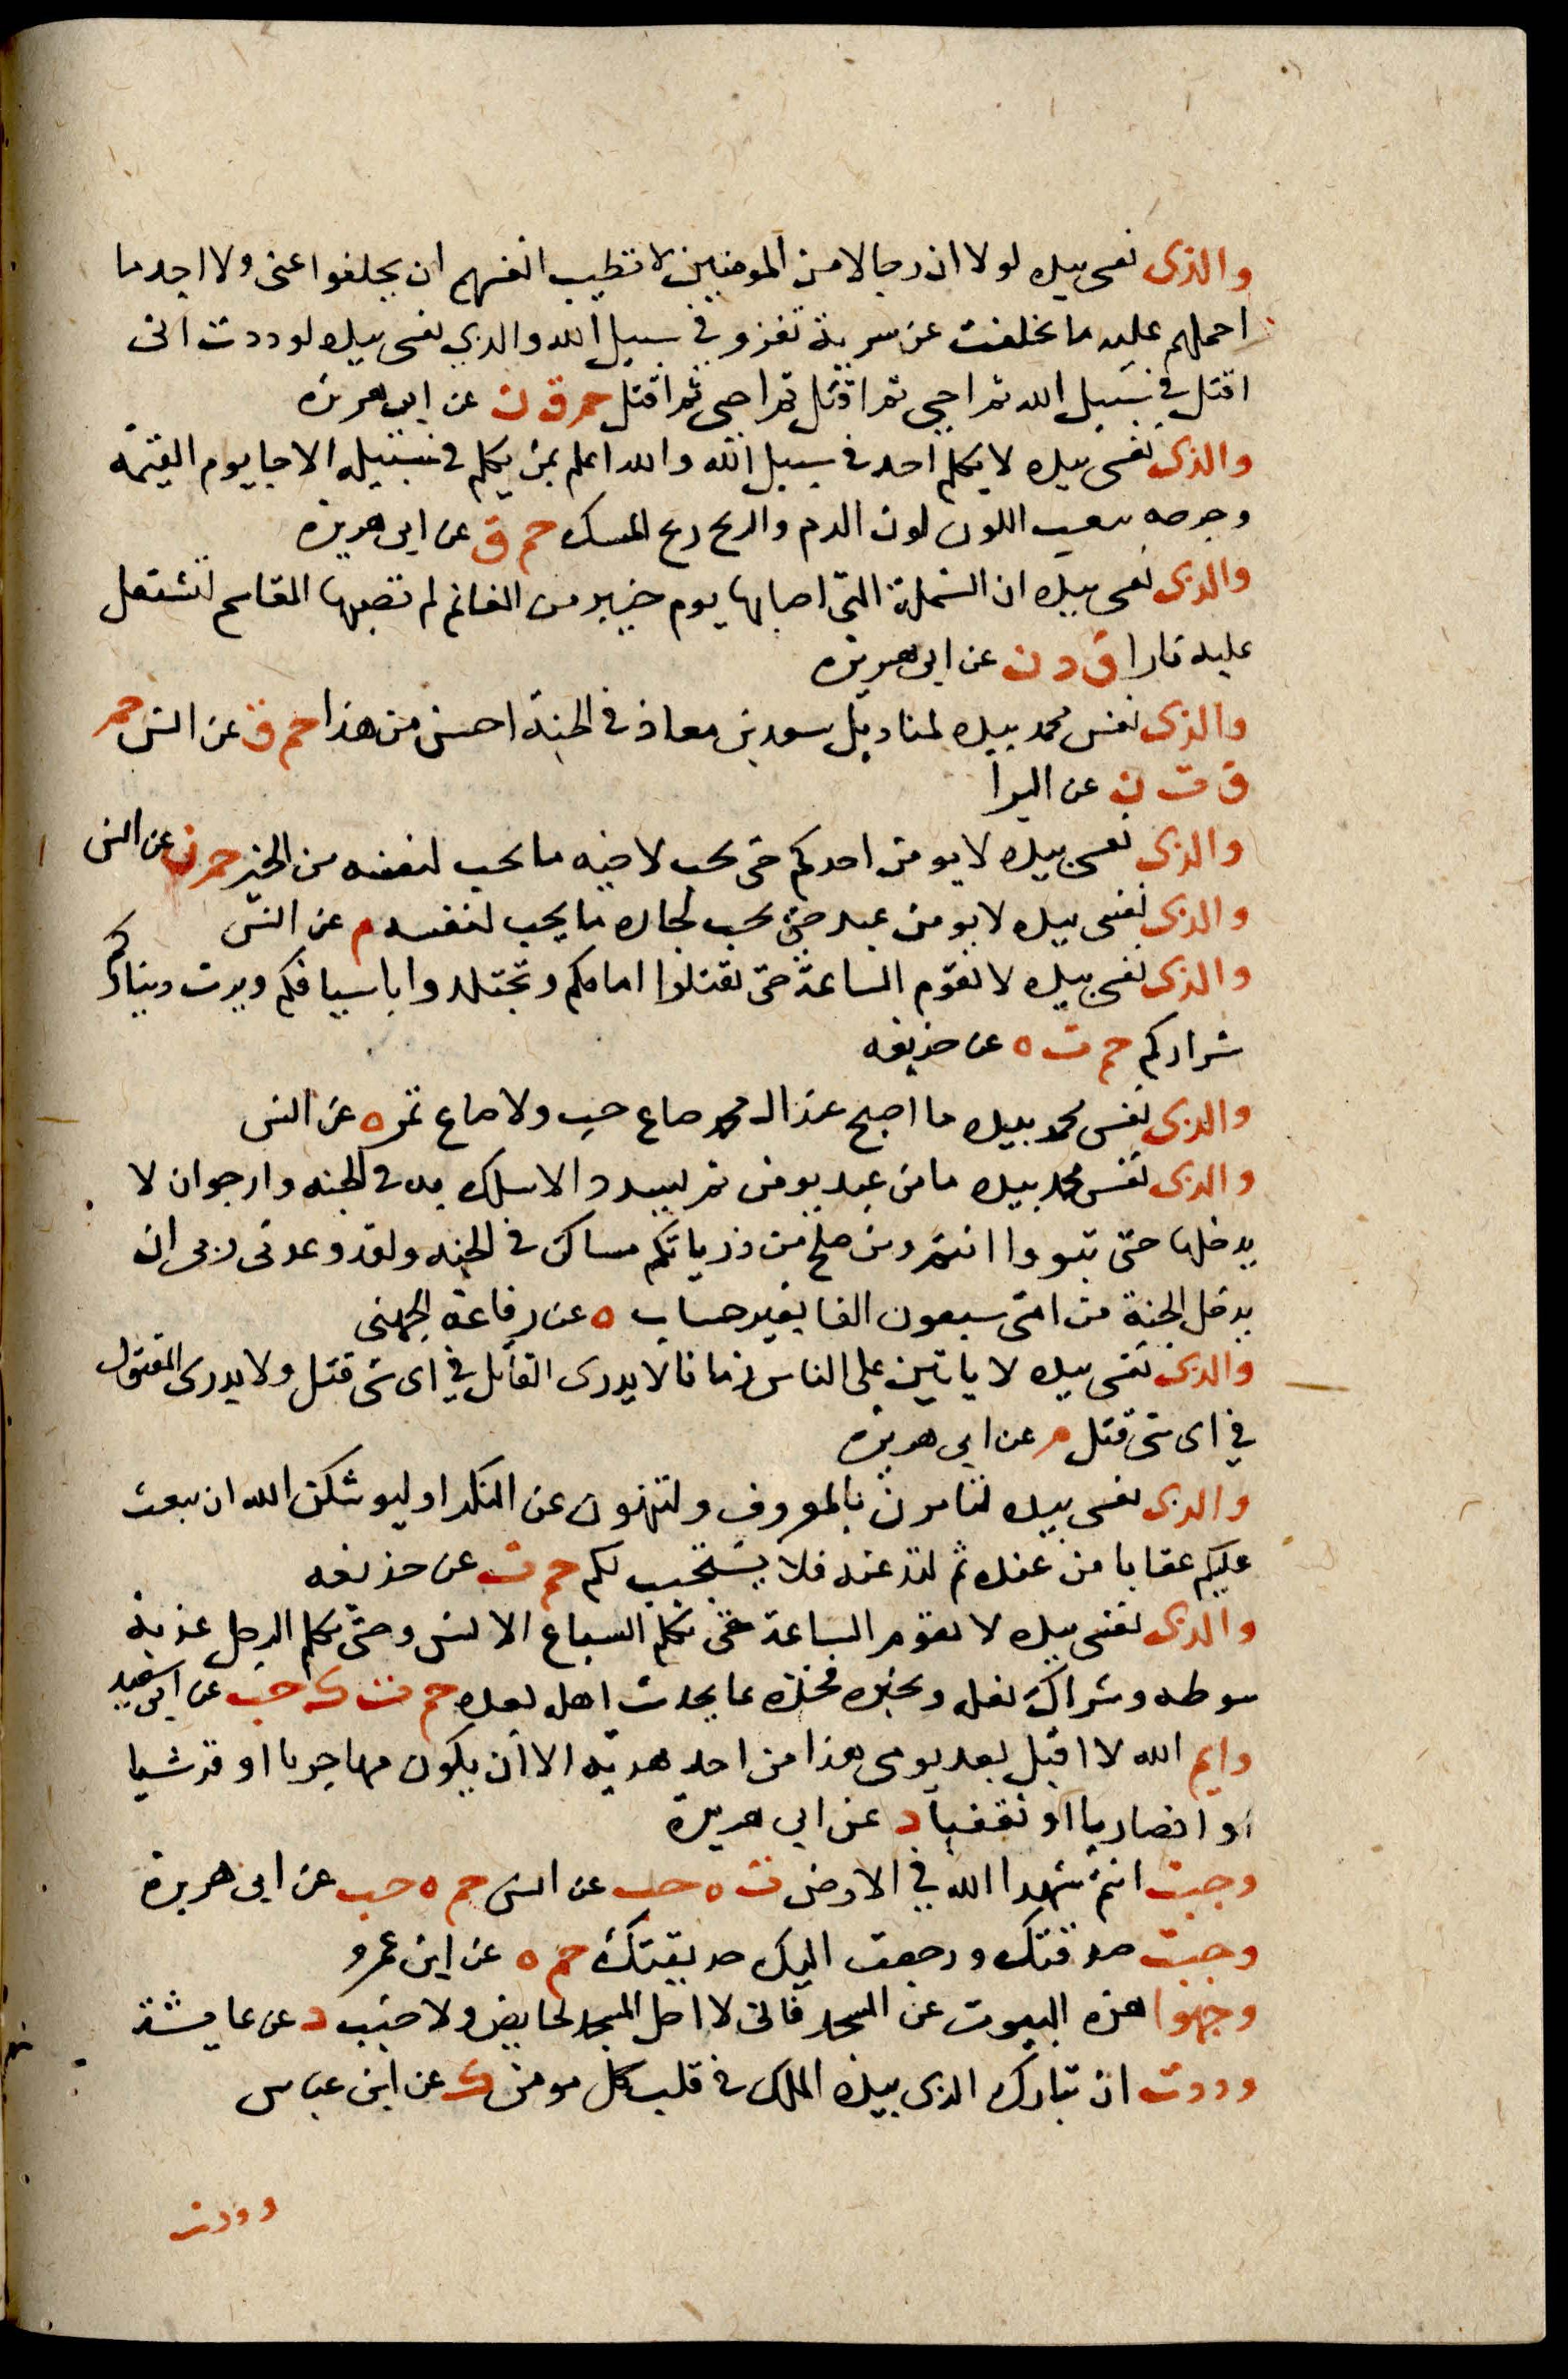 والذى نفسى بيده لولا ان رجالا من المومنين لا تطيب انفسهم ان يتخلفوا عنى ولا اجد ما
احملهم عليه ما تخلفت عن سرية تغزو فى سبيل الله والذى نفسى بيده لوددت انى
اقتل فى سبيل الله ثم احيى ثم اقتل ثم احيى ثم اقتل حم ق ن عن ابى هريرة
والذى نفسى بيده لا يكلم احد فى سبيل الله والله اعلم بمن يكلم فى سبيله الا جا يوم القيمة
وجرحه يثعب اللون لون الدم والريح ريح المسك حم ق عن ابى هريرة
والذى نفسى بيده ان الشملة التى اصابها يوم خيبر من الغانم لم تصبها المقاسم لتشتعل
عليه نارا ق د ن عن ابى هريرة
والذى نفس محمد بيده لمناديل سعد بن معاذ فى الجنة احسن من هذا حم ق عن انس حم
ق ت ن عن البرا
والذى نفسى بيده لا يومن احدكم حتى يحب لاخيه ما يحب لنفسه من الخير حم ن عن انس
والذى نفسى بيده لا يومن عبد حتى يحب لجاره ما يحب لنفسه م عن انس
والذى نفسى بيده لا تقوم الساعة حتى تقتلوا امامكم وتجتلدوا باسيافكم ويرث دنياكم
شراركم حم ت ه عن حذيفه
والذى نفس محمد بيده ما اصبح عند ال محمد صاع حب ولا صاع تمر ه عن انس
والذى نفس محمد بيده ما من عبد يومن ثم يسدد الا سلك به فى الجنه وارجو ان لا
يدخلها حتى تبووا انتم ومن صلح من ذرياتكم مساكن فى الجنه ولقد وعدنى ربى ان
يدخل الجنة من امتى سبعون الفا بغير حساب ه عن رفاعة الجهنى
والذى نفسى بيده لا ياتين على الناس زمانا لا يدرى القاتل فى اى شى قتل ولا يدرى المقتول
فى اى شى قتل م عن ابى هريرة
والذى نفسى بيده لتامرن بالمعروف ولتنهون عن المنكر او ليوشكن الله ان يبعث
عليكم عقابا من عنده ثم لتدعنه فلا يستجيب لكم حم ت عن حذيفه
والذى نفسى بيده لا تقوم الساعة حتى تكلم السباع الانس وحتى تكلم الرجل عذبة
سوطه وشراك نعله وتخبره فخذه بما يحدث اهله بعده حم ت ك حب عن ابى سعيد
وايم الله لا اقبل بعد يومى هذا من احد هديه الا ان يكون مهاجريا او قرشيا
او انصاريا او ثقفيا د عن ابى هريرة
وجبت انتم شهدا الله فى الارض ت ه حب عن انس حم ه حب عن ابى هريرة
وجبت صدقتك ورجعت اليك حديقتك حم ه عن ابن عمرو
وجهوا هذه البيوت عن المسجد فانى لا احل المسجد لحايض ولا جنب د عن عايشة
وددت ان تبارك الذى بيده الملك فى قلب كل مومن ك عن ابن عباس
وددت